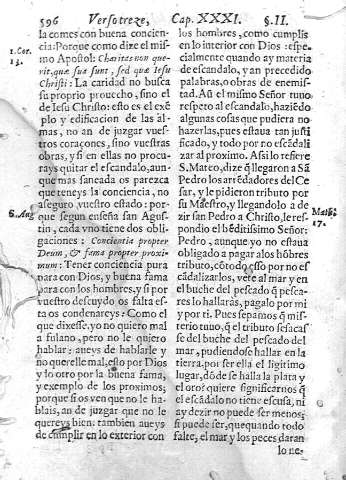 596 Versotreze, Cap. XXXI. §. II.
la comes con buena concien-
cia: Porque como dize el mis-
1. Cor. 13.
mo Apostol: Charitas non quæ-
rit, quæ sua sunt, sed quæ Iesu
Christi: La caridad no busca
su proprio prouecho, sino el
de Iesu Christo: esto es el exẽ-
plo y edificacion de las al-
mas, no an de juzgar vues-
tros coraçones, sino vuestras
obras, y si en ellas no procu-
rays quitar el escandalo, aun-
que mas saneada os parezca
que teneys la conciencia, no
S. Aug.
aseguro vuestro estado: por-
que segun enseña san Agus-
tin, cada vno tiene dos obli-
gaciones: Conscientia propter
Deum, & fama propter proxi-
mum: Tener conciencia pura
para con Dios, y buena fama
para con los hombres, y si por
vuestro descuydo os falta es-
ta os condenareys: Como el
que dixesse. yo no quiero mal
a fulano, pero no le quiero
hablar: aueys de hablarle y
no querelle mal, esto por Dios
y lo otro por la buena fama,
y exemplo de los proximos;
porque si os ven que no le ha-
blais, an de juzgar que no le
quereys bien: tambien aueys
de cumplir en lo exterior con
los hombres, como cumplis
en lo interior con Dios: espe-
cialmente quando ay materia
de escandalo, y an precedido
palabras, o obras de enemis-
tad. Aũ el mismo Señor tuuo
respeto al escandalo, haziẽdo
algunas cosas que pudiera no
hazerlas, pues estaua tan justi
ficado, y todo por no escãda-
lizar al proximo. Assi lo refiere
S. Mateo, dize q̃ llegaron a Sã
Pedro los arrẽdadores del Ce-
sar, y le pidieron tributo por
su Maestro, y llegandolo a de-
Math. 17.
zir san Pedro a Christo, le res-
pondio el bẽditissimo Señor:
Pedro, aunque yo no estaua
obligado a pagar a los hõbres
tributo, cõ todo esso por no es-
cãdalizarlos, vete al mar y en
el buche del pescado q̃ pesca-
res lo hallarás, pagalo por mi
y por ti. Pues sepamos q̃ mis-
terio tuuo, q̃ el tributo se sacas
se del buche del pescado del
mar, pudiendose hallar en la
tierra, por ser ella el ligitimo
lugar, dõde se halla la plata y
el oro? quiere significarnos q̃
el escãdalo no tiene escusa, ni
ay dezir no puede ser menos;
si puede ser, que quando todo
falte, el mar y los peces daran
lo ne-